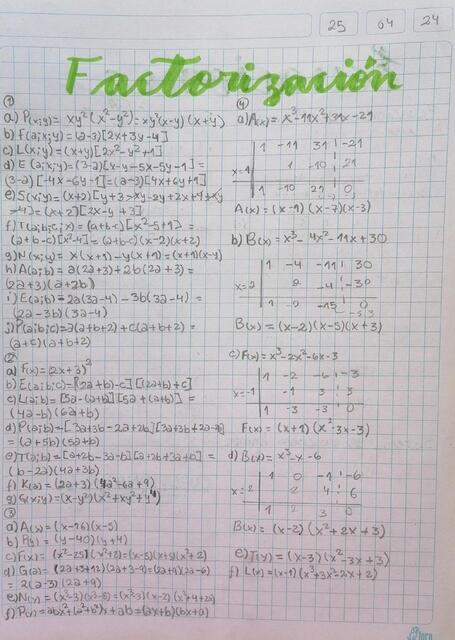 25 04 24
Factorización
①
a) P(x;y)= xy²(x²-y²)=xy²(x-y)(x+y)
b) F(a;x;y)=(a-3)[2x+3y-4]
c) L(x;y)=(x+y)[2x²-y²+1]
d) E(a;x;y)=(3-a)[x-y-5x-5y-1]=
(3-a)[-4x-6y-1]=(a-3)[4x+6y+1]
e) S(x;y)=(x+2)[y+3
-4]=(x+2)[2x-y+3]
f) T(a;b;c;x)=(a+b-c)[x²-5+1]=
(a+b-c)[x²-4]=(a+b-c)(x-2)(x+2)
g) N(x;y)= x(x+1)-y(x+1)=(x+1)(x-y)
h) A(a;b)= a(2a+3)+2b(2a+3)=
(2a+3)(a+2b)
i) E(a;b)=2a(3a-4)-3b(3a-4)=
(2a-3b)(3a-4)
j) P(a;b;c)=a(a+b+2)+c(a+b+2)=
(a+c)(a+b+2)
②
a) F(x)=(2x+3)²
b) E(a;b;c)=[(2a+b)-c][(2a+b)+c]
c) L(a;b)=[5a-(a+b)][5a+(a+b)]=
(4a-b)(6a+b)
d) P(a;b)=[3a+3b-2a+2b][3a+3b+2a-2b]
=(a+5b)(5a+b)
e) T(a;b)=[a+2b-3a-b][a+2b+3a+b]=
(b-2a)(4a+3b)
f) K(a)=(2a+3)(4a²-6a+9)
g) G(x;y)=(x-y²)(x²+xy²+y⁴)
③
a) A(x)=(x-16)(x-5)
b) P(y)=(y-40)(y+4)
c) F(x)=(x²-25)(x²+2)=(x-5)(x+5)(x²+2)
d) G(a)=(2a+3+12)(2a+3-9)=(2a+15)(2a-6)
=2(a-3)(2a+9)
e) N(x)=(x³-3)(x³-8)=(x³-3)(x-2)(x²+4+2x)
f) P(x)=abx²+(a²+b²)x+ab=(ax+b)(bx+a)
④
a) A(x)=x³-11x²+31x-21
1 -11 31 -21
x=1 1 -10 21
1 -10 21 0
A(x)=(x-1)(x-7)(x-3)
b) B(x)=x³-4x²-11x+30
1 -4 -11 30
x=2 2 -4 -30
1 -2 -15 0
B(x)=(x-2)(x-5)(x+3)
c) F(x)=x³-2x²-6x-3
1 -2 -6 -3
x=-1 -1 3 3
1 -3 -3 0
F(x)=(x+1)(x²-3x-3)
d) B(x)=x³-x-6
1 0 -1 -6
x=2 2 4 6
1 2 3 0
B(x)=(x-2)(x²+2x+3)
e) T(x)=(x-3)(x²-3x+3)
f) L(x)=(x-1)(x³+3x²-2x+2)